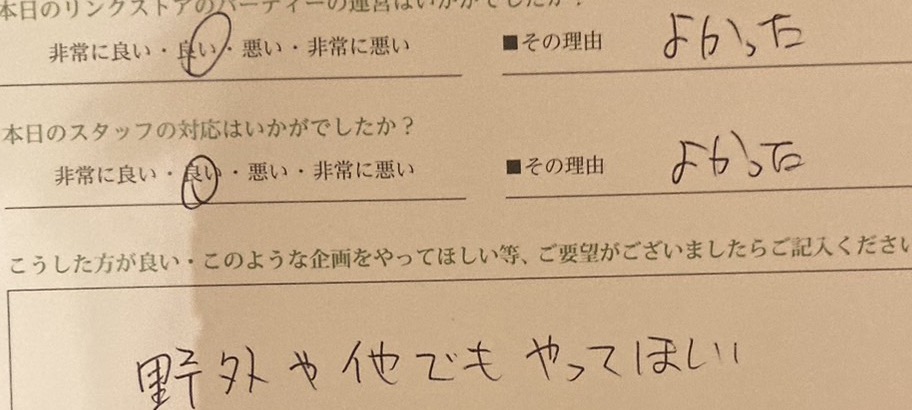 本日のリンクストアのパーティーの運営はいかがでしたか?
非常に良い・良い・悪い・非常に悪い ■その理由 よかった
本日のスタッフの対応はいかがでしたか?
非常に良い・良い・悪い・非常に悪い ■その理由 よかった
こうした方が良い・このような企画をやってほしい等、ご要望がございましたらご記入ください
野外や他でもやってほしい